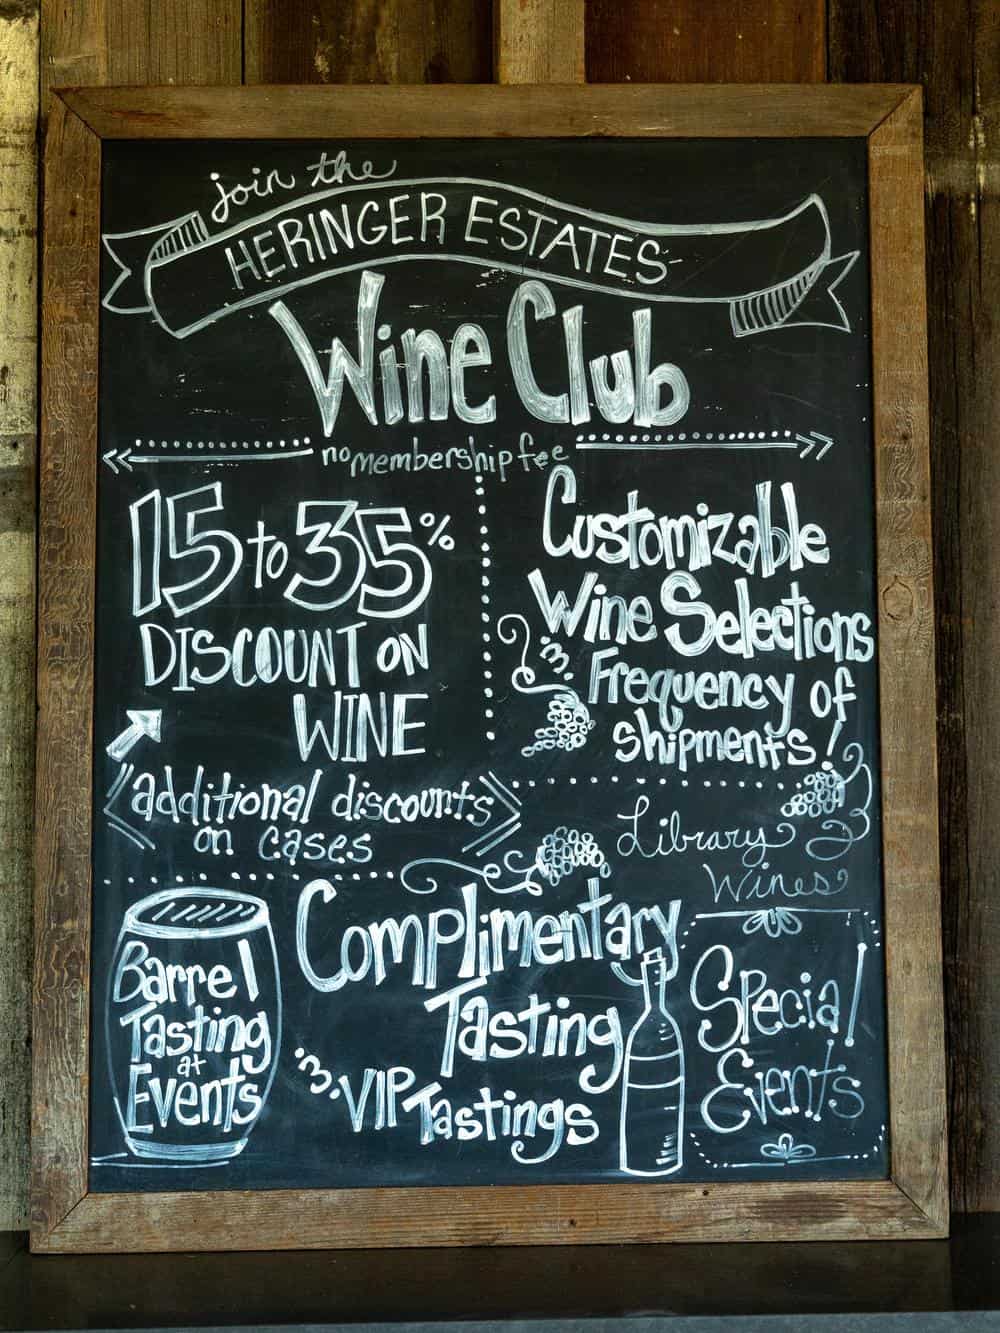 join the
HERINGER ESTATES
Wine Club
no membership fee
15 to 35%
DISCOUNT ON
WINE
additional discounts
on cases
Customizable
Wine Selections
& Frequency of
shipments!
Library
Wines
Barrel
Tasting
at
Events
Complimentary
Tasting
& VIP Tastings
Special
Events